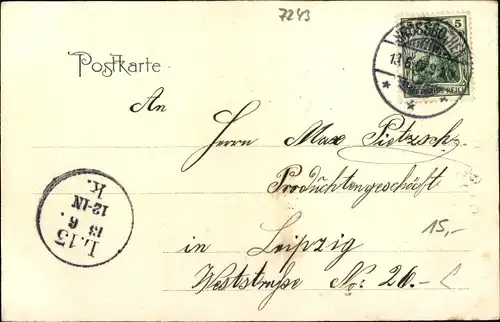 7243
5
DEUTSCHES REICH
13.6.
Postkarte
An
Herrn Max Pietzsch,
Produchtengeschäft
15,-
in Leipzig
Weststraße No: 20.
L.13
13
6.
12-1N
K.